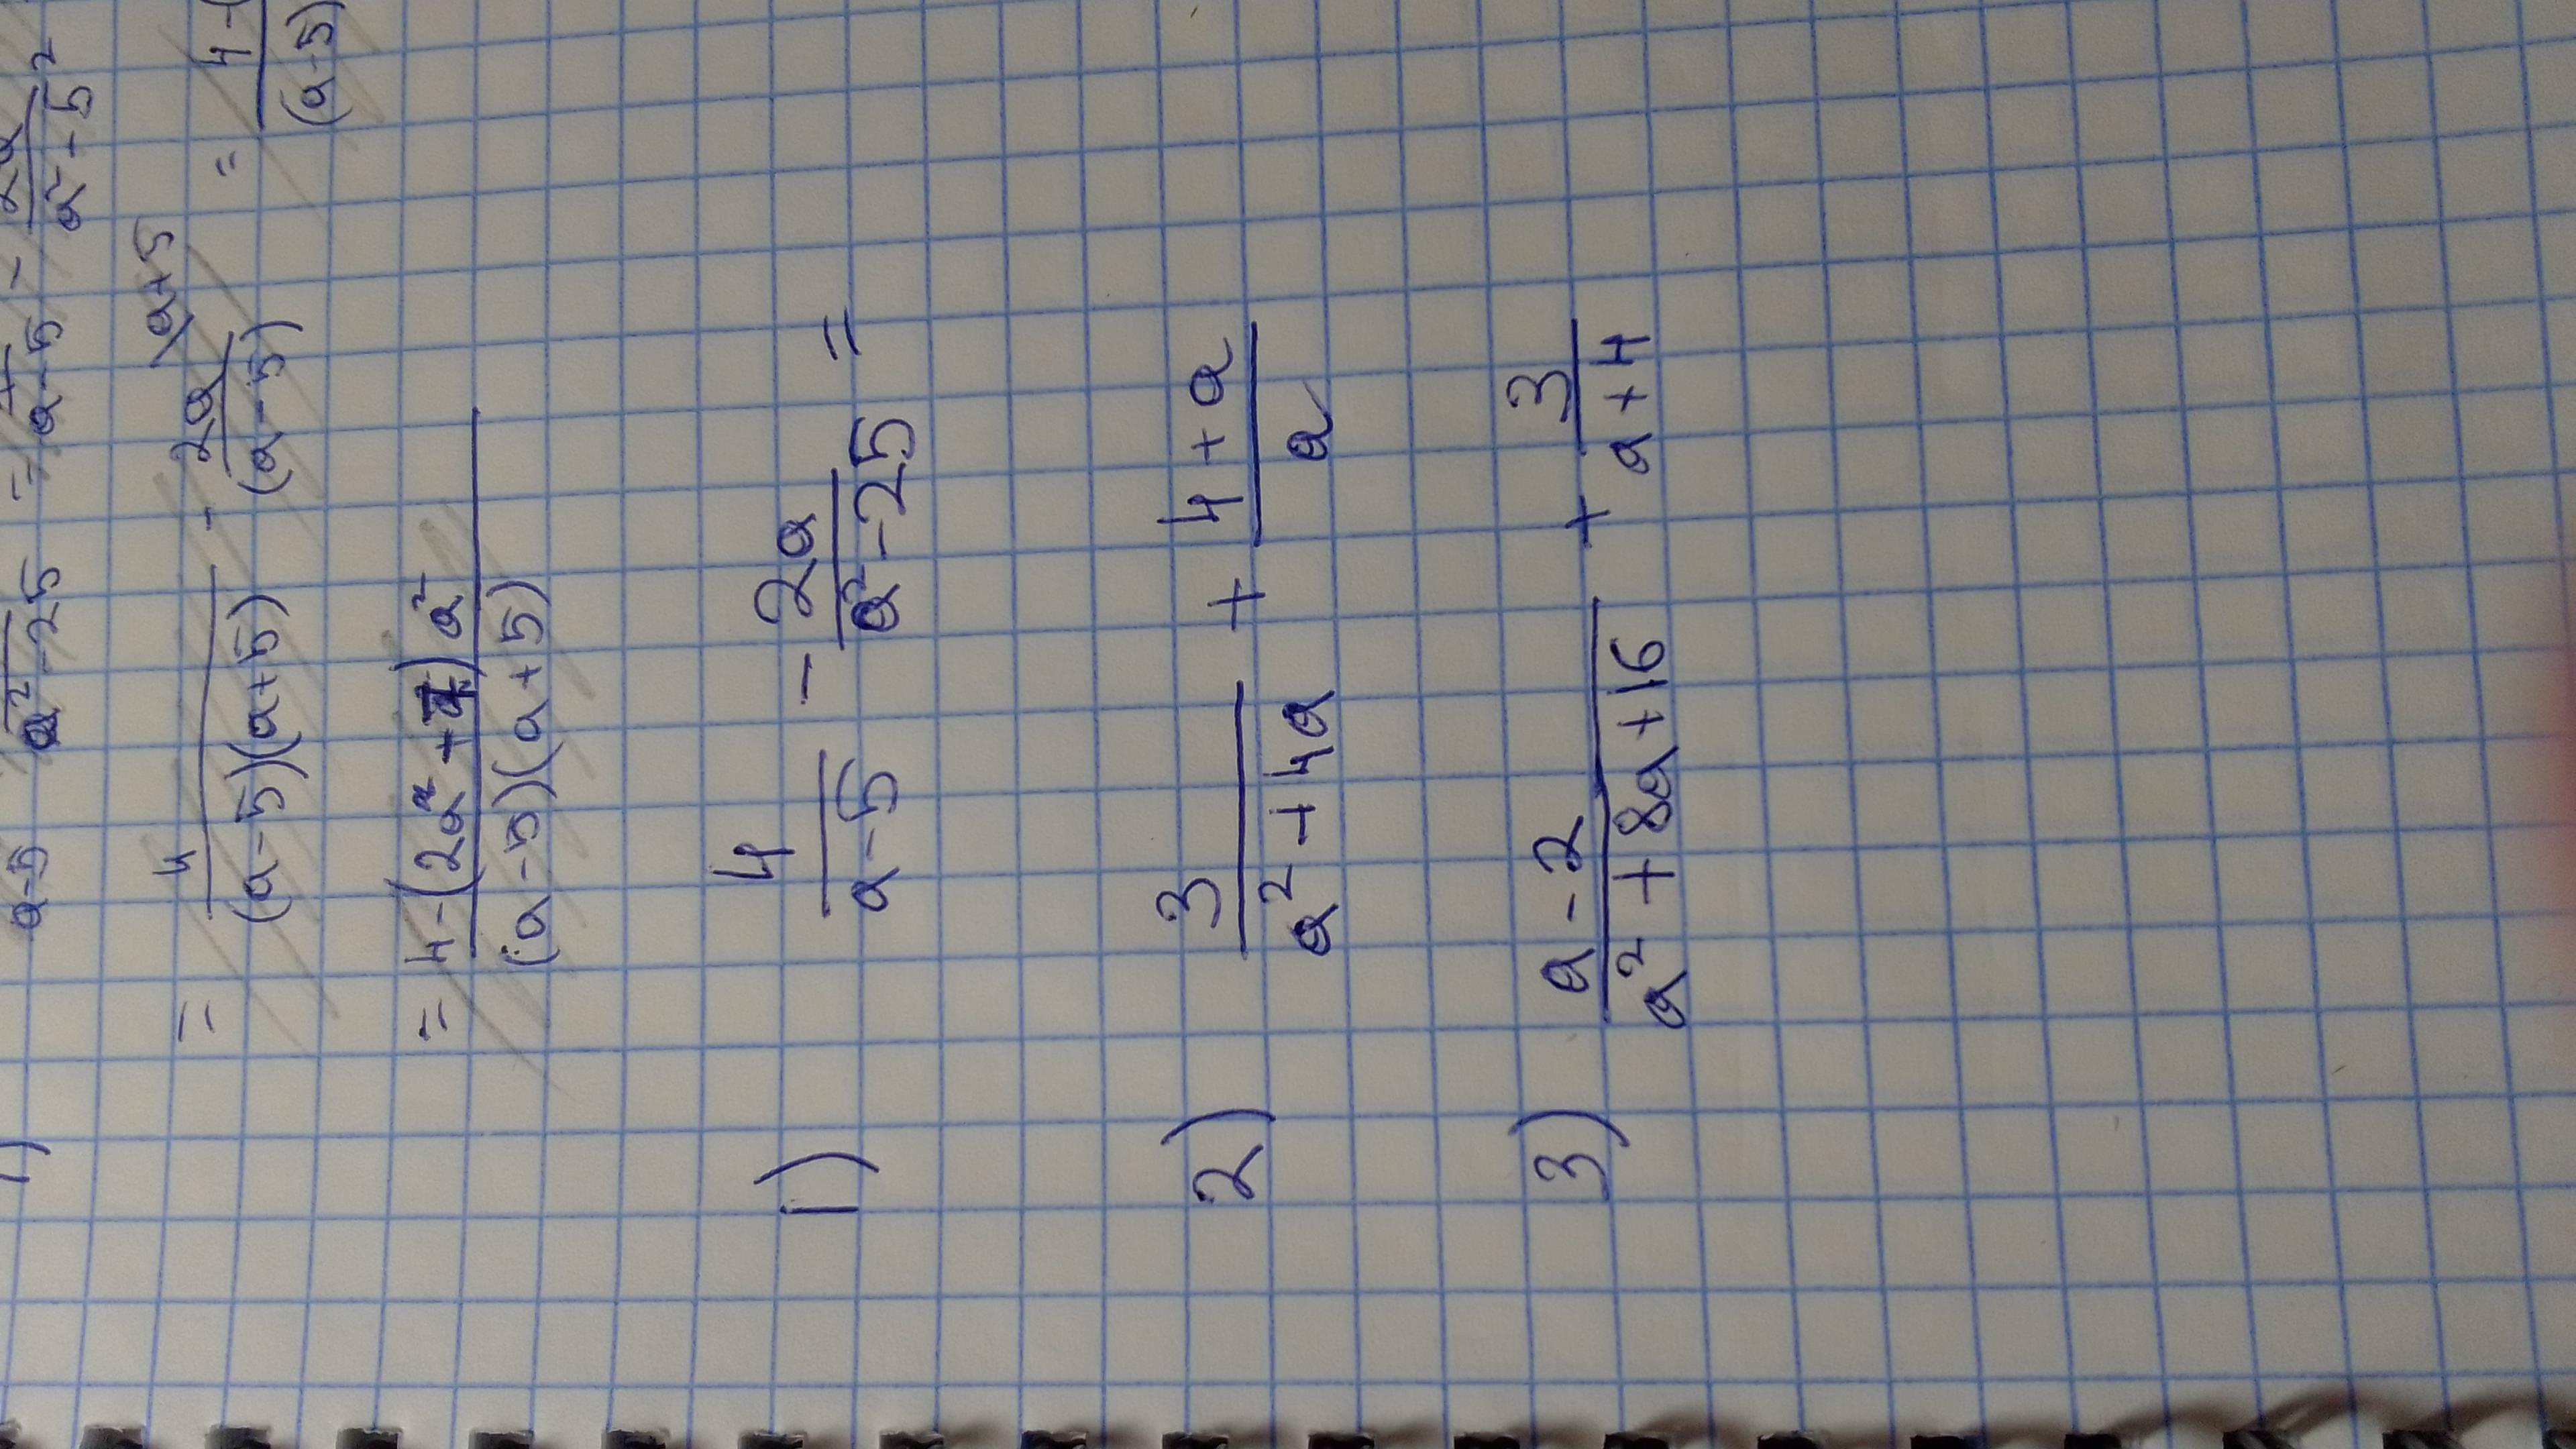 1) a-5 a²-25 = a-5 - 2a/(a²-5²)
= 4/((a-5)(a+5)) - 2a/(a-5) \a+5 = 4-(/(a-5)
= (4-(2a²+) a²)/((a-5)(a+5)
1) 4/(a-5) - 2a/(a²-25) =
2) 3/(a²+4a) + (4+a)/a
3) (a-2)/(a²+8a+16) + 3/(a+4)